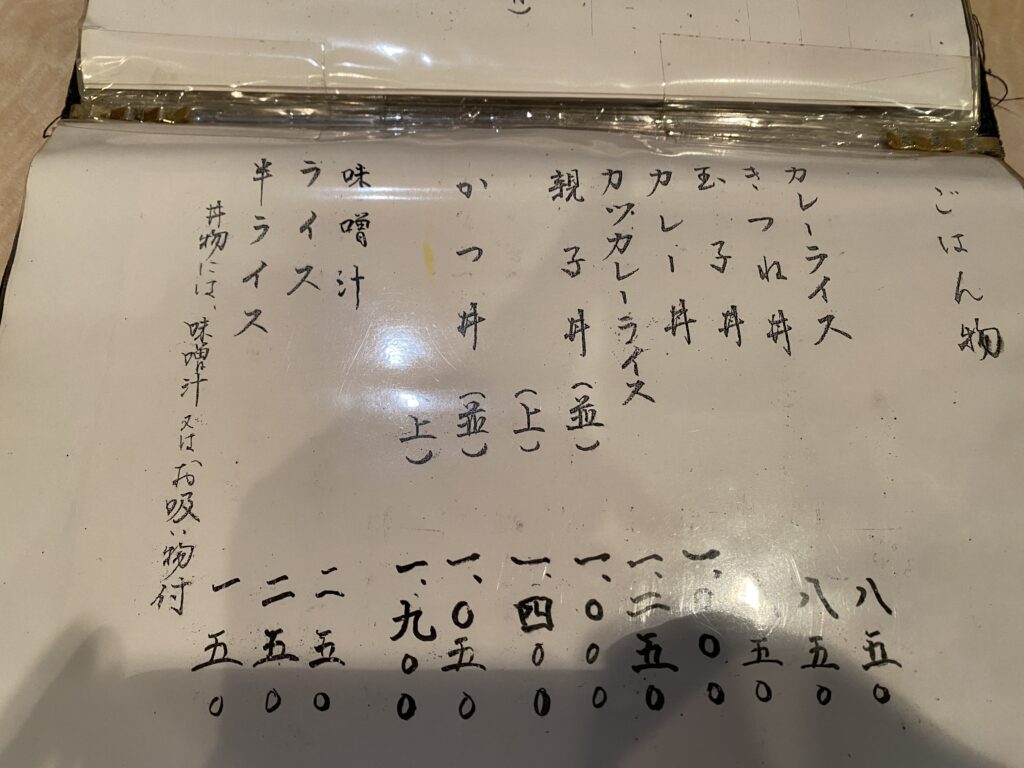 ごはん物
カレーライス 八五0
きつね丼 八五0
玉子丼 五0
カレー丼 一、000
カツカレーライス 一、二五0
親子丼(並) 一、000
(上) 一、四00
かつ丼(並) 一、0五0
(上) 一、九00
味噌汁 二五0
ライス 二五0
半ライス 一五0
丼物には、味噌汁又はお吸い物付